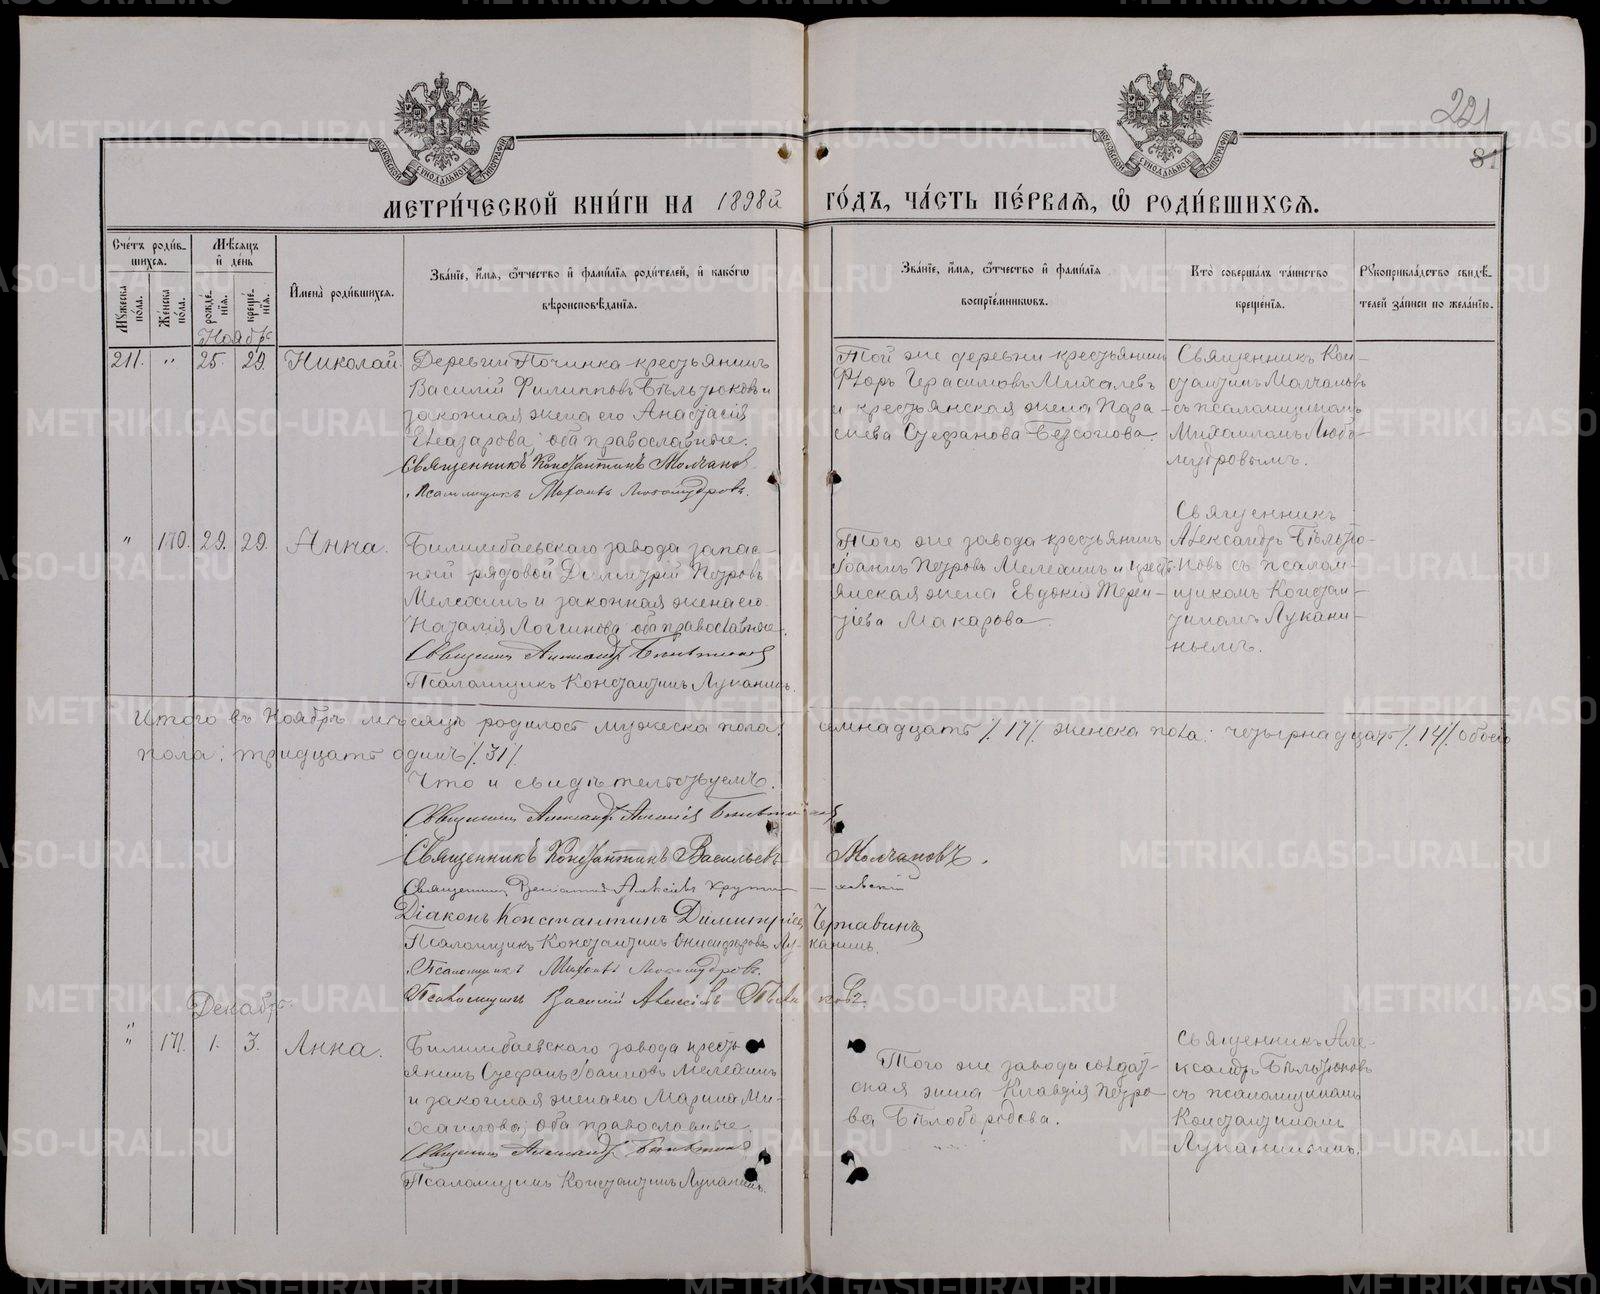 221
81
МЕТРИ́ЧЕСКОЙ КНИ́ГИ НА 1898й ГО́ДЪ, ЧА́СТЬ ПЕ́РВАЯ, Ѽ РОДИ́ВШИХСЯ.
Сче́тъ роди́вшихся.
Му́жеска по́ла.
Же́нска по́ла.
Мѣ́сяцъ и де́нь
рожде́нїя.
креще́нїя.
Имена̀ роди́вшихся.
Зва́нїе, и́мя, ѻ́тчество и фами́лїя роди́телей, и како́гѡ вѣроисповѣ́данїя.
Зва́нїе, и́мя, ѻ́тчество и фами́лїя воспрїе́мниковъ.
Кто̀ соверша́лъ та́инство креще́нїя.
Рукоприкла́дство свидѣ́телей за́писи по жела́нїю.
Ноябрь
211. " 25. 29. Николай.
Деревни Починка крестьянинъ
Василій Филипповъ Бѣльтюковъ и
законная жена его Анастасія
Елеазарова; оба православные.
Священникъ Константинъ Молчанов
Псаломщикъ Михаилъ Любомудровъ.
Той же деревни крестьянинъ
Ѳлоръ Герасимовъ Михалевъ
и крестьянская жена Пара-
скева Стефанова Безсонова.
Священникъ Кон-
стантинъ Молчановъ
съ псаломщикомъ
Михаиломъ Любо-
мудровымъ.
" 170. 29. 29. Анна.
Билимбаевскаго завода запас-
ный рядовой Димитрій Петровъ
Мелехинъ и законная жена его
Наталія Логгинова; оба православные.
Священникъ Александръ Бѣльтюковъ
Псаломщикъ Константинъ Луканинъ.
Того же завода крестьянинъ
Іоаннъ Петровъ Мелехинъ и крест-
янская жена Евдокія Терен-
тіева Макарова.
Священникъ
Александръ Бѣльтю-
ковъ съ псалом-
щикомъ Констан-
тиномъ Лукани-
нымъ.
Итого въ Ноябрѣ мѣсяцѣ родилось мужеска пола: семнадцать /17/ женска пола: четырнадцать /14/ обоего
пола: тридцать одинъ /31/.
Что и свидѣтельствуемъ.
Священникъ Александръ Бѣльтюковъ
Священникъ Константинъ Васильевъ Молчановъ.
Діаконъ Константинъ Димитріев Чернавинъ
Псаломщикъ Константинъ Онисифоровъ Луканинъ.
Псаломщикъ Михаилъ Любомудровъ.
Псаломщикъ Василій Алексѣевъ
Декабрь
" 171. 1. 3. Анна.
Билимбаевскаго завода кресть-
янинъ Стефанъ Іоанновъ Мелехинъ
и законная жена его Марина Ми-
хаилова; оба православные.
Священникъ Александръ Бѣльтюковъ
Псаломщикъ Константинъ Луканинъ.
Того же завода солдат-
ская жена Клавдія Петро-
ва Бѣлобородова.
Священникъ Але-
ксандръ Бѣльтюковъ
съ псаломщикомъ
Константиномъ
Луканинымъ.
METRIKI.GASO-URAL.RU